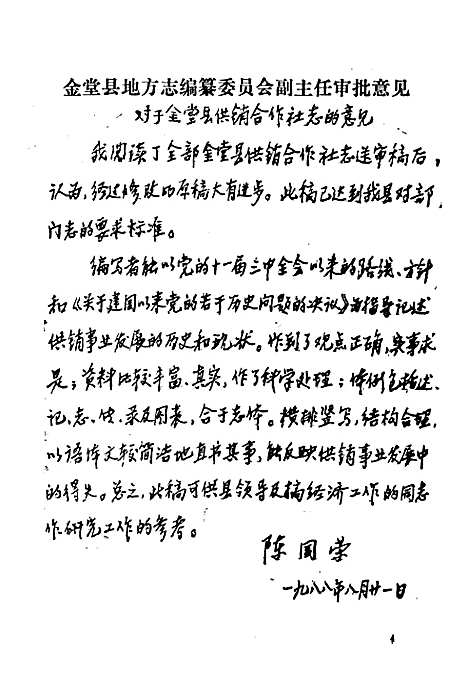 金堂县地方志编纂委员会副主任审批意见
对于金堂县供销合作社志的意见
我阅读了全部金堂县供销合作社志送审稿后，
认为，经过修改的原稿大有进步。此稿已达到我县对部
门志的要求标准。
编写者能以党的十一届三中全会以来的路线、方针
和《关于建国以来党的若干历史问题的决议》为指导记述
供销事业发展的历史和现状。作到了观点正确，实事求
是；资料比较丰富、真实，作了科学处理；体例包括述、
记、志、传、录及图表，合于志体。横排竖写，结构合理，
以语体文较简洁地直书其事，能反映供销事业发展中
的得失。总之，此稿可供县领导及搞经济工作的同志
作研究工作的参考。
陈国荣
一九八八年八月廿一日
4